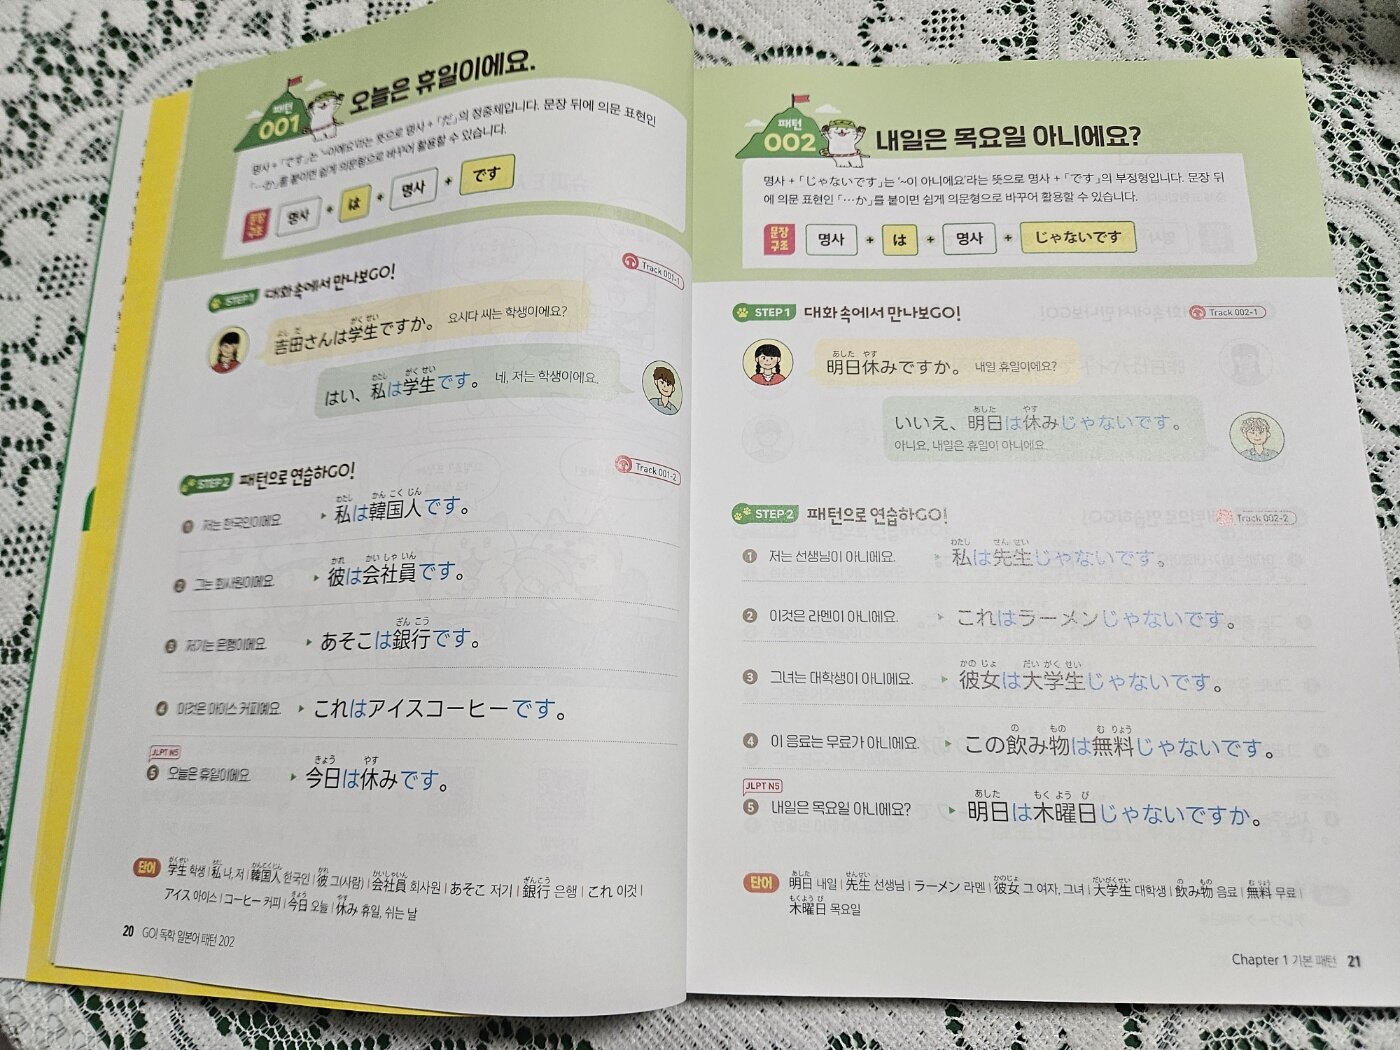 패턴
001
오늘은 휴일이에요.
명사 + 「です」는 '~이에요'라는 뜻으로 명사 + 「だ」의 정중체입니다. 문장 뒤에 의문 표현인
「…か」를 붙이면 쉽게 의문형으로 바꾸어 활용할 수 있습니다.
문장
구조
명사 + は + 명사 + です
STEP 1 대화 속에서 만나보GO!
Track 001-1
よし だ がく せい
吉田さんは学生ですか。 요시다 씨는 학생이에요?
わたし がく せい
はい、私は学生です。 네, 저는 학생이에요.
STEP 2 패턴으로 연습하GO!
Track 001-2
わたし かん こく じん
1 저는 한국인이에요. 私は韓国人です。
かれ かい しゃ いん
2 그는 회사원이에요. 彼は会社員です。
ぎん こう
3 저기는 은행이에요. あそこは銀行です。
4 이것은 아이스 커피예요. これはアイスコーヒーです。
JLPT N5
きょう やす
5 오늘은 휴일이에요. 今日は休みです。
がくせい わたし かんこくじん かれ かいしゃいん ぎんこう
단어 学生 학생 | 私 나, 저 | 韓国人 한국인 | 彼 그(사람) | 会社員 회사원 | あそこ 저기 | 銀行 은행 | これ 이것 |
きょう やす
アイス 아이스 | コーヒー 커피 | 今日 오늘 | 休み 휴일, 쉬는 날
20 GO! 독학 일본어 패턴 202
패턴
002
내일은 목요일 아니에요?
명사 + 「じゃないです」는 '~이 아니에요'라는 뜻으로 명사 + 「です」의 부정형입니다. 문장 뒤
에 의문 표현인 「…か」를 붙이면 쉽게 의문형으로 바꾸어 활용할 수 있습니다.
문장
구조
명사 + は + 명사 + じゃないです
STEP 1 대화 속에서 만나보GO!
Track 002-1
あした やす
明日休みですか。 내일 휴일이에요?
あした やす
いいえ、明日は休みじゃないです。
아니요, 내일은 휴일이 아니에요.
STEP 2 패턴으로 연습하GO!
Track 002-2
わたし せん せい
1 저는 선생님이 아니에요. 私は先生じゃないです。
2 이것은 라멘이 아니에요. これはラーメンじゃないです。
かの じょ だい がく せい
3 그녀는 대학생이 아니에요. 彼女は大学生じゃないです。
の もの む りょう
4 이 음료는 무료가 아니에요. この飲み物は無料じゃないです。
JLPT N5
あした もく よう び
5 내일은 목요일 아니에요? 明日は木曜日じゃないですか。
あした せんせい かのじょ だいがくせい の もの む りょう
단어 明日 내일 | 先生 선생님 | ラーメン 라멘 | 彼女 그 여자, 그녀 | 大学生 대학생 | 飲み物 음료 | 無料 무료 |
もくよう び
木曜日 목요일
Chapter 1 기본 패턴 21